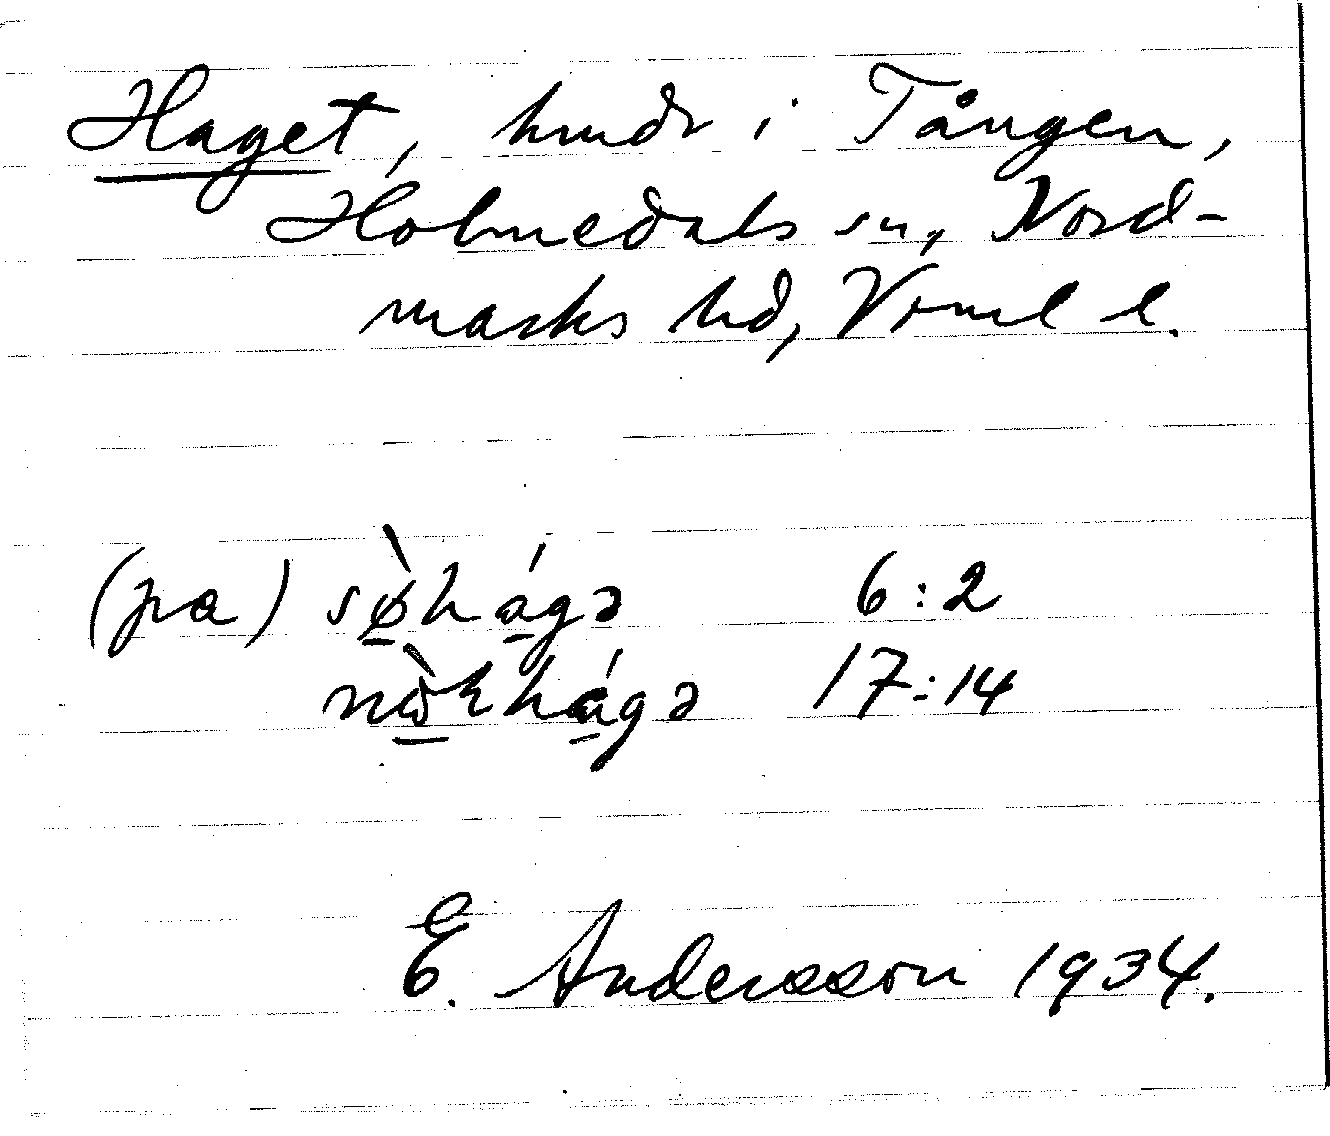 Haget, hmdr i Tången,
Holmedals sn, Nord-
marks hd, Vrml l.
(pa) sø̀hágə 6:2
nòkhágə 17:14
E. Andersson 1934.